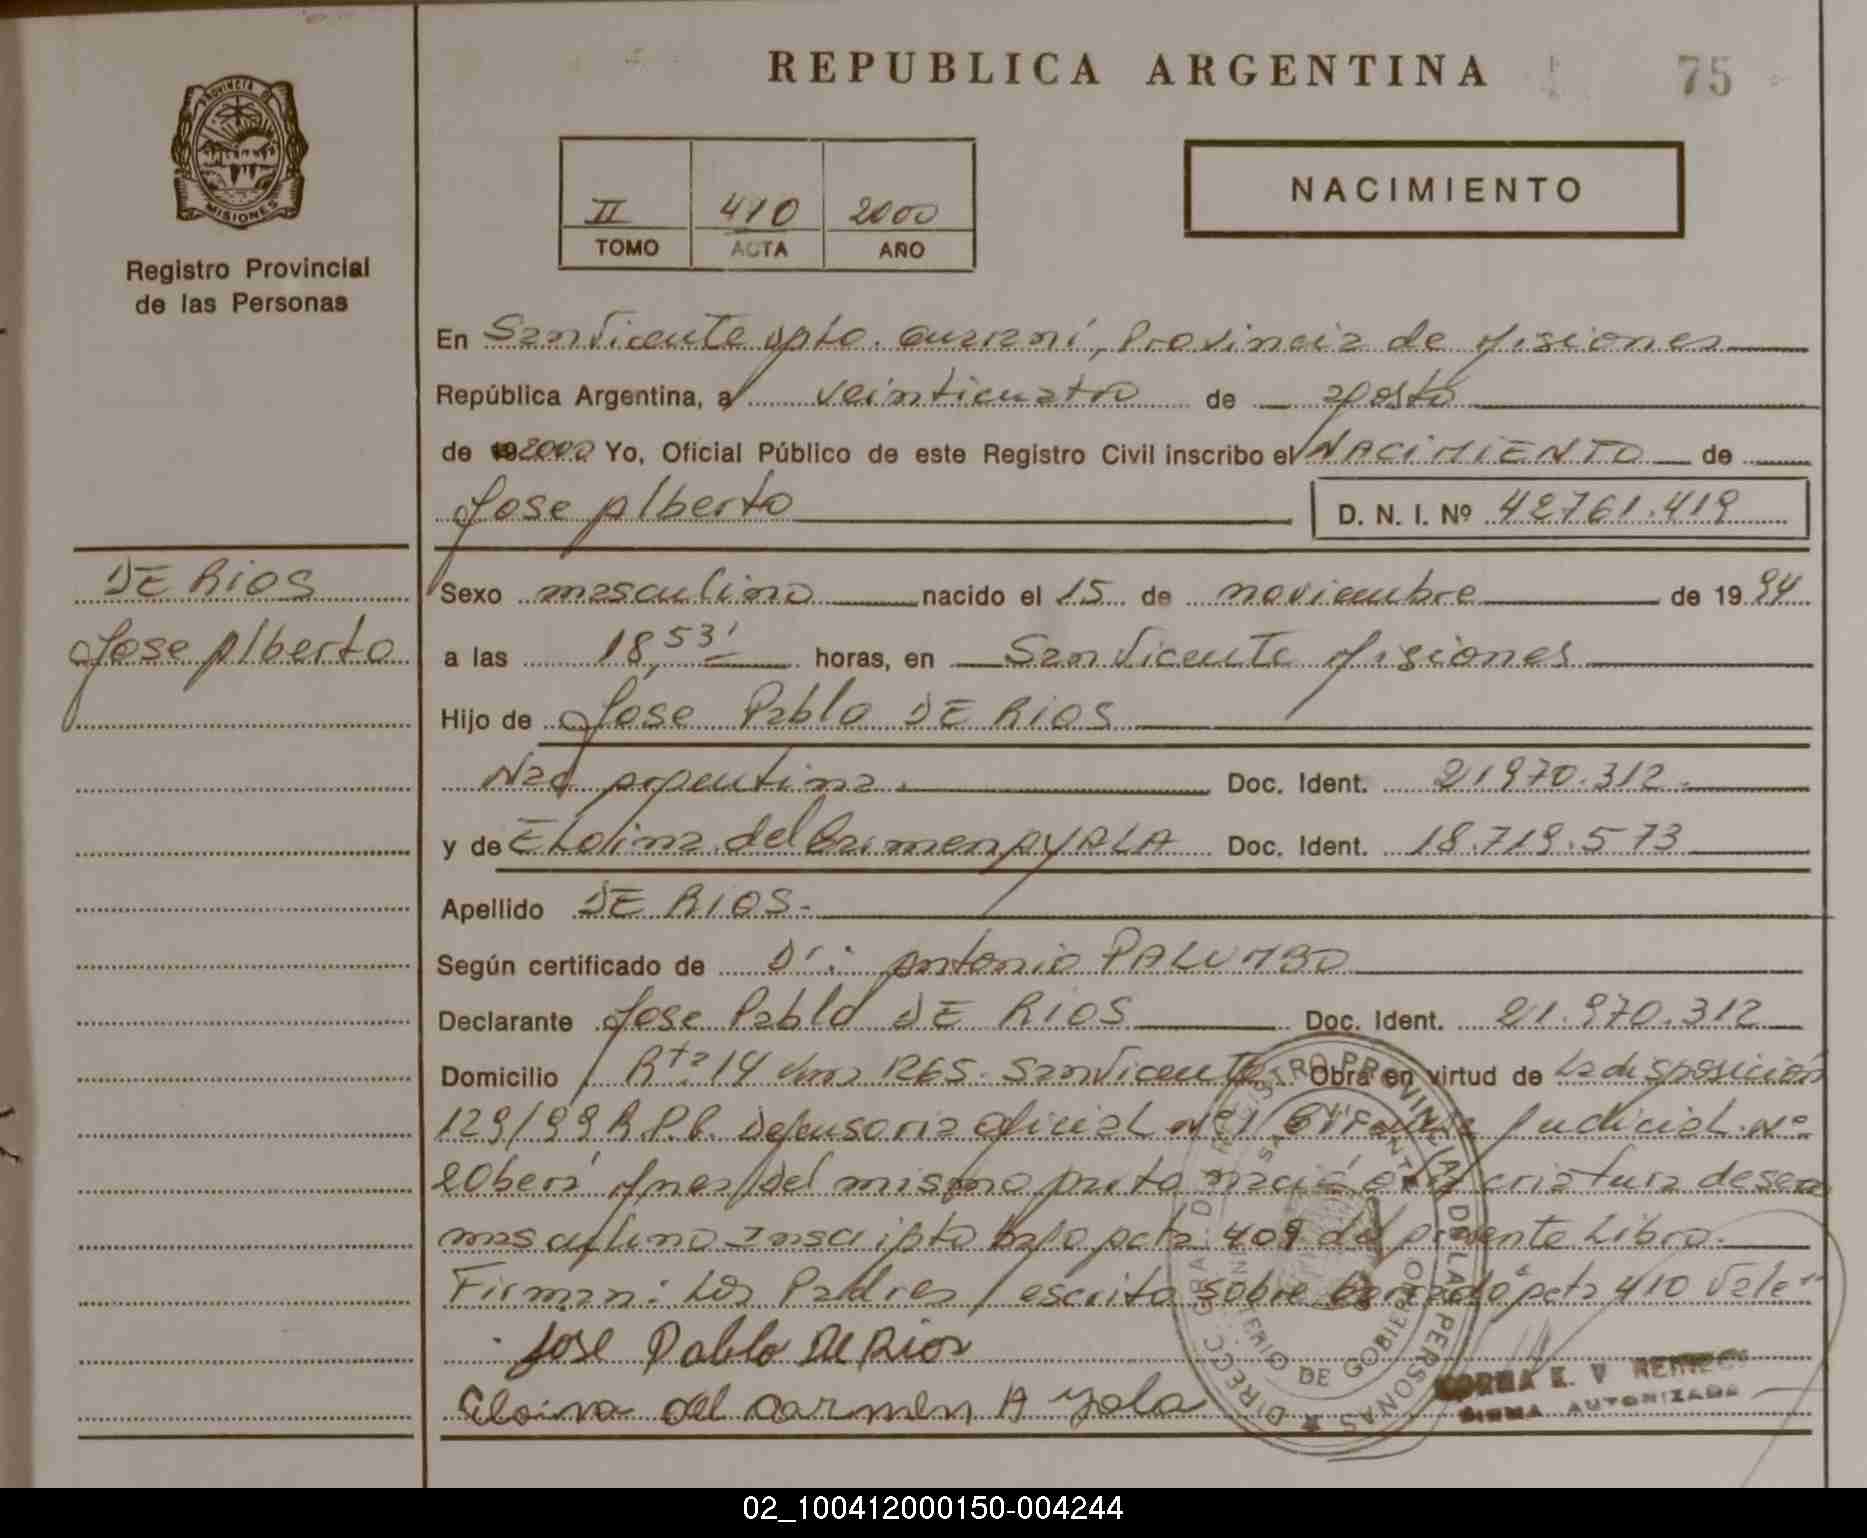 REPUBLICA ARGENTINA
75
PROVINCIA DE
MISIONES
Registro Provincial
de las Personas
II 410 2000
TOMO ACTA AÑO
NACIMIENTO
En San Vicente Dpto. Guaraní, Provincia de Misiones
República Argentina, a veinticuatro de agosto
de 192000 Yo, Oficial Público de este Registro Civil inscribo el NACIMIENTO de
Jose Alberto D. N. I. Nº 42761.419
DE RIOS
Jose Alberto
Sexo masculino nacido el 15 de noviembre de 1994
a las 18,53' horas, en San Vicente Misiones
Hijo de Jose Pablo DE RIOS
Nac Argentina. Doc. Ident. 21970.312.
y de Eloina del Carmen AYALA Doc. Ident. 18.719.573
Apellido DE RIOS.
Según certificado de Dr: Antonio PALUMBO
Declarante Jose Pablo DE RIOS Doc. Ident. 21.970.312
Domicilio Rta 14 Km 1265. San Vicente Obra en virtud de La disposición
129/99 R.P.P. Defensoria Oficial Nº 1 Judicial Nº
2 Oberá Mnes/ Del mismo parto nació otra criatura de sexo
masculino Inscripto bajo Acta 409 del presente Libro.
Firman: Los Padres / escrito sobre borrado "Acta 410 Vale"
Jose Pablo De Rios
Eloina del Carmen Ayala
DIRECC. GRAL. DEL REGISTRO PROVINCIAL DE LAS PERSONAS
SAN VICENTE
MINISTERIO DE GOBIERNO
NORMA E. V
FIRMA AUTORIZADA
02_100412000150-004244